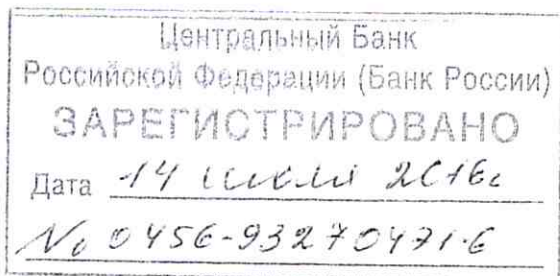 Центральный Банк
Российской Федерации (Банк России)
ЗАРЕГИСТРИРОВАНО
Дата 14 июля 2016г
№ 0456-93270471-6